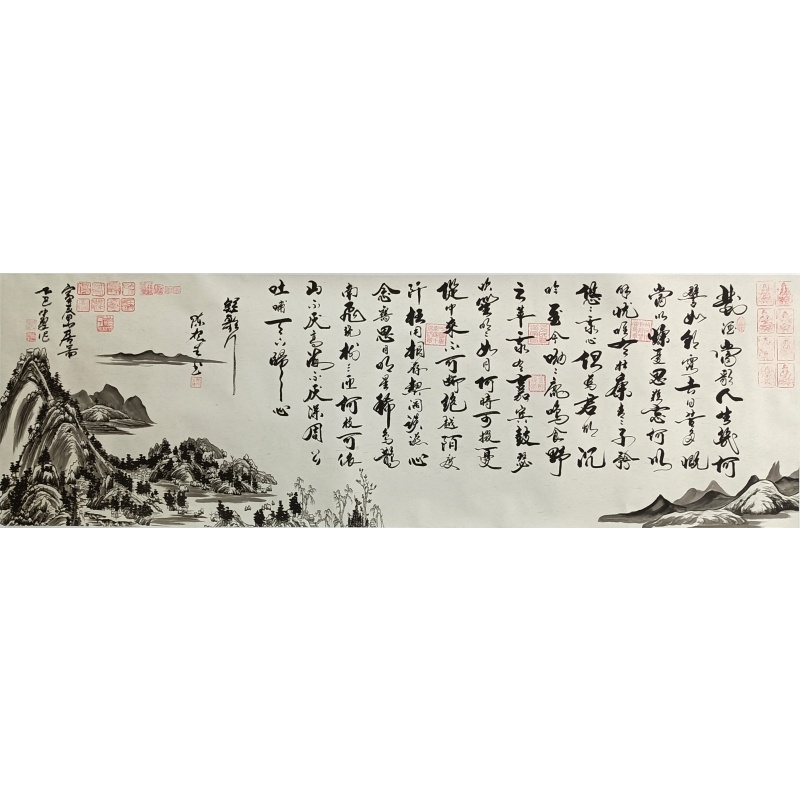 對酒當歌人生幾何
譬如朝露去日苦多慨
當以慷憂思難忘何以
解憂唯有杜康青〻子衿
悠〻我心但為君故沉
吟至今呦〻鹿鳴食野
之苹我有嘉賓鼓瑟
吹笙明〻如月何時可掇憂
從中來不可斷絕越陌度
阡枉用相存契闊談讌心
念舊恩月明星稀烏鵲
南飛繞樹三匝何枝可依
山不厭高海不厭深周公
吐哺天下歸心
短歌行
富春山居圖
乙巳夏作